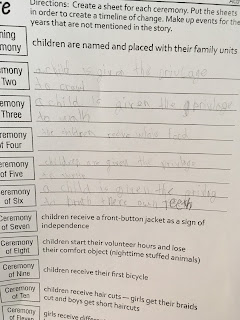 re
Directions: Create a sheet for each ceremony. Put the sheets
in order to create a timeline of change. Make up events for the
years that are not mentioned in the story.
ning
mony
children are named and placed with their family units
mony
Two
a child is given the
to crawl
emony
Three
a child is given the
to walk
remony
f Four
children receive
food
eremony
of Five
children are given the
to
eremony
of Six
a child is given the
to brush there own teeth
Ceremony
of Seven
children receive a front-button jacket as a sign of
independence
Ceremony
of Eight
children start their volunteer hours and lose
their comfort object (nighttime stuffed animals)
Ceremony
of Nine
children receive their first bicycle
Ceremony
of Ten
children receive hair cuts — girls get their braids
cut and boys get short haircuts
Ceremony
of Eleven
girls receive